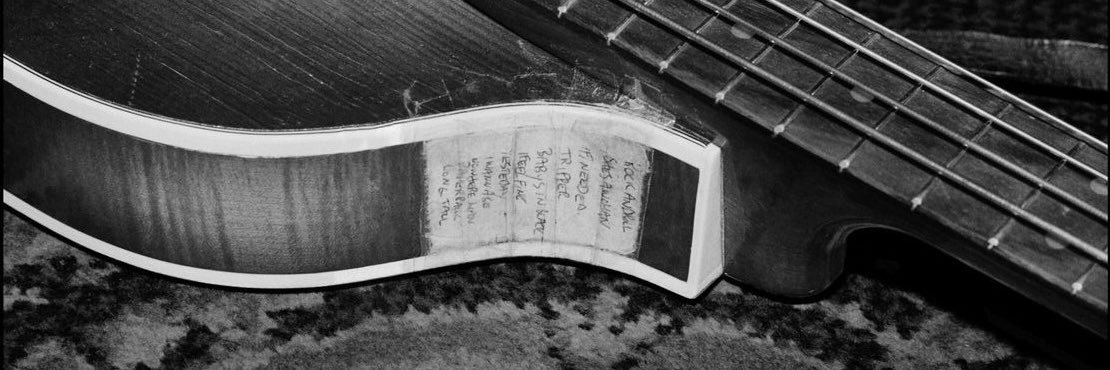 ROCK AND ROLL
SHES A WOMAN
IF NEEDED
TRIPPER
BABYS IN BLACK
I FEEL FINE
YESTERDAY
I WANNA BE
NOWHERE MAN
PAPERBACK
LONG TALL